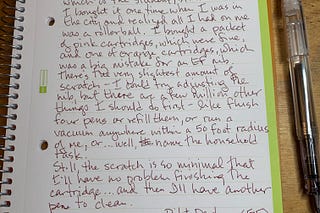 I bought it one time when I was in
the city and realized all I had on me
was a rollerball. I bought a packet
of pink cartridges, which were fine,
and one of orange cartridges, which
was a big mistake for an EF nib.
There's the very slightest amount of
scratch - I could try adjusting the
nib but there are a few million other
things I should do first - like finish
four pens or refill them, or run a
vacuum anywhere within a 50 foot radius
of me, or... well, name the household
task.
Still, the scratch is so minimal that
I'll have no problem finishing the
cartridge... and then I'll have another
pen to clean.